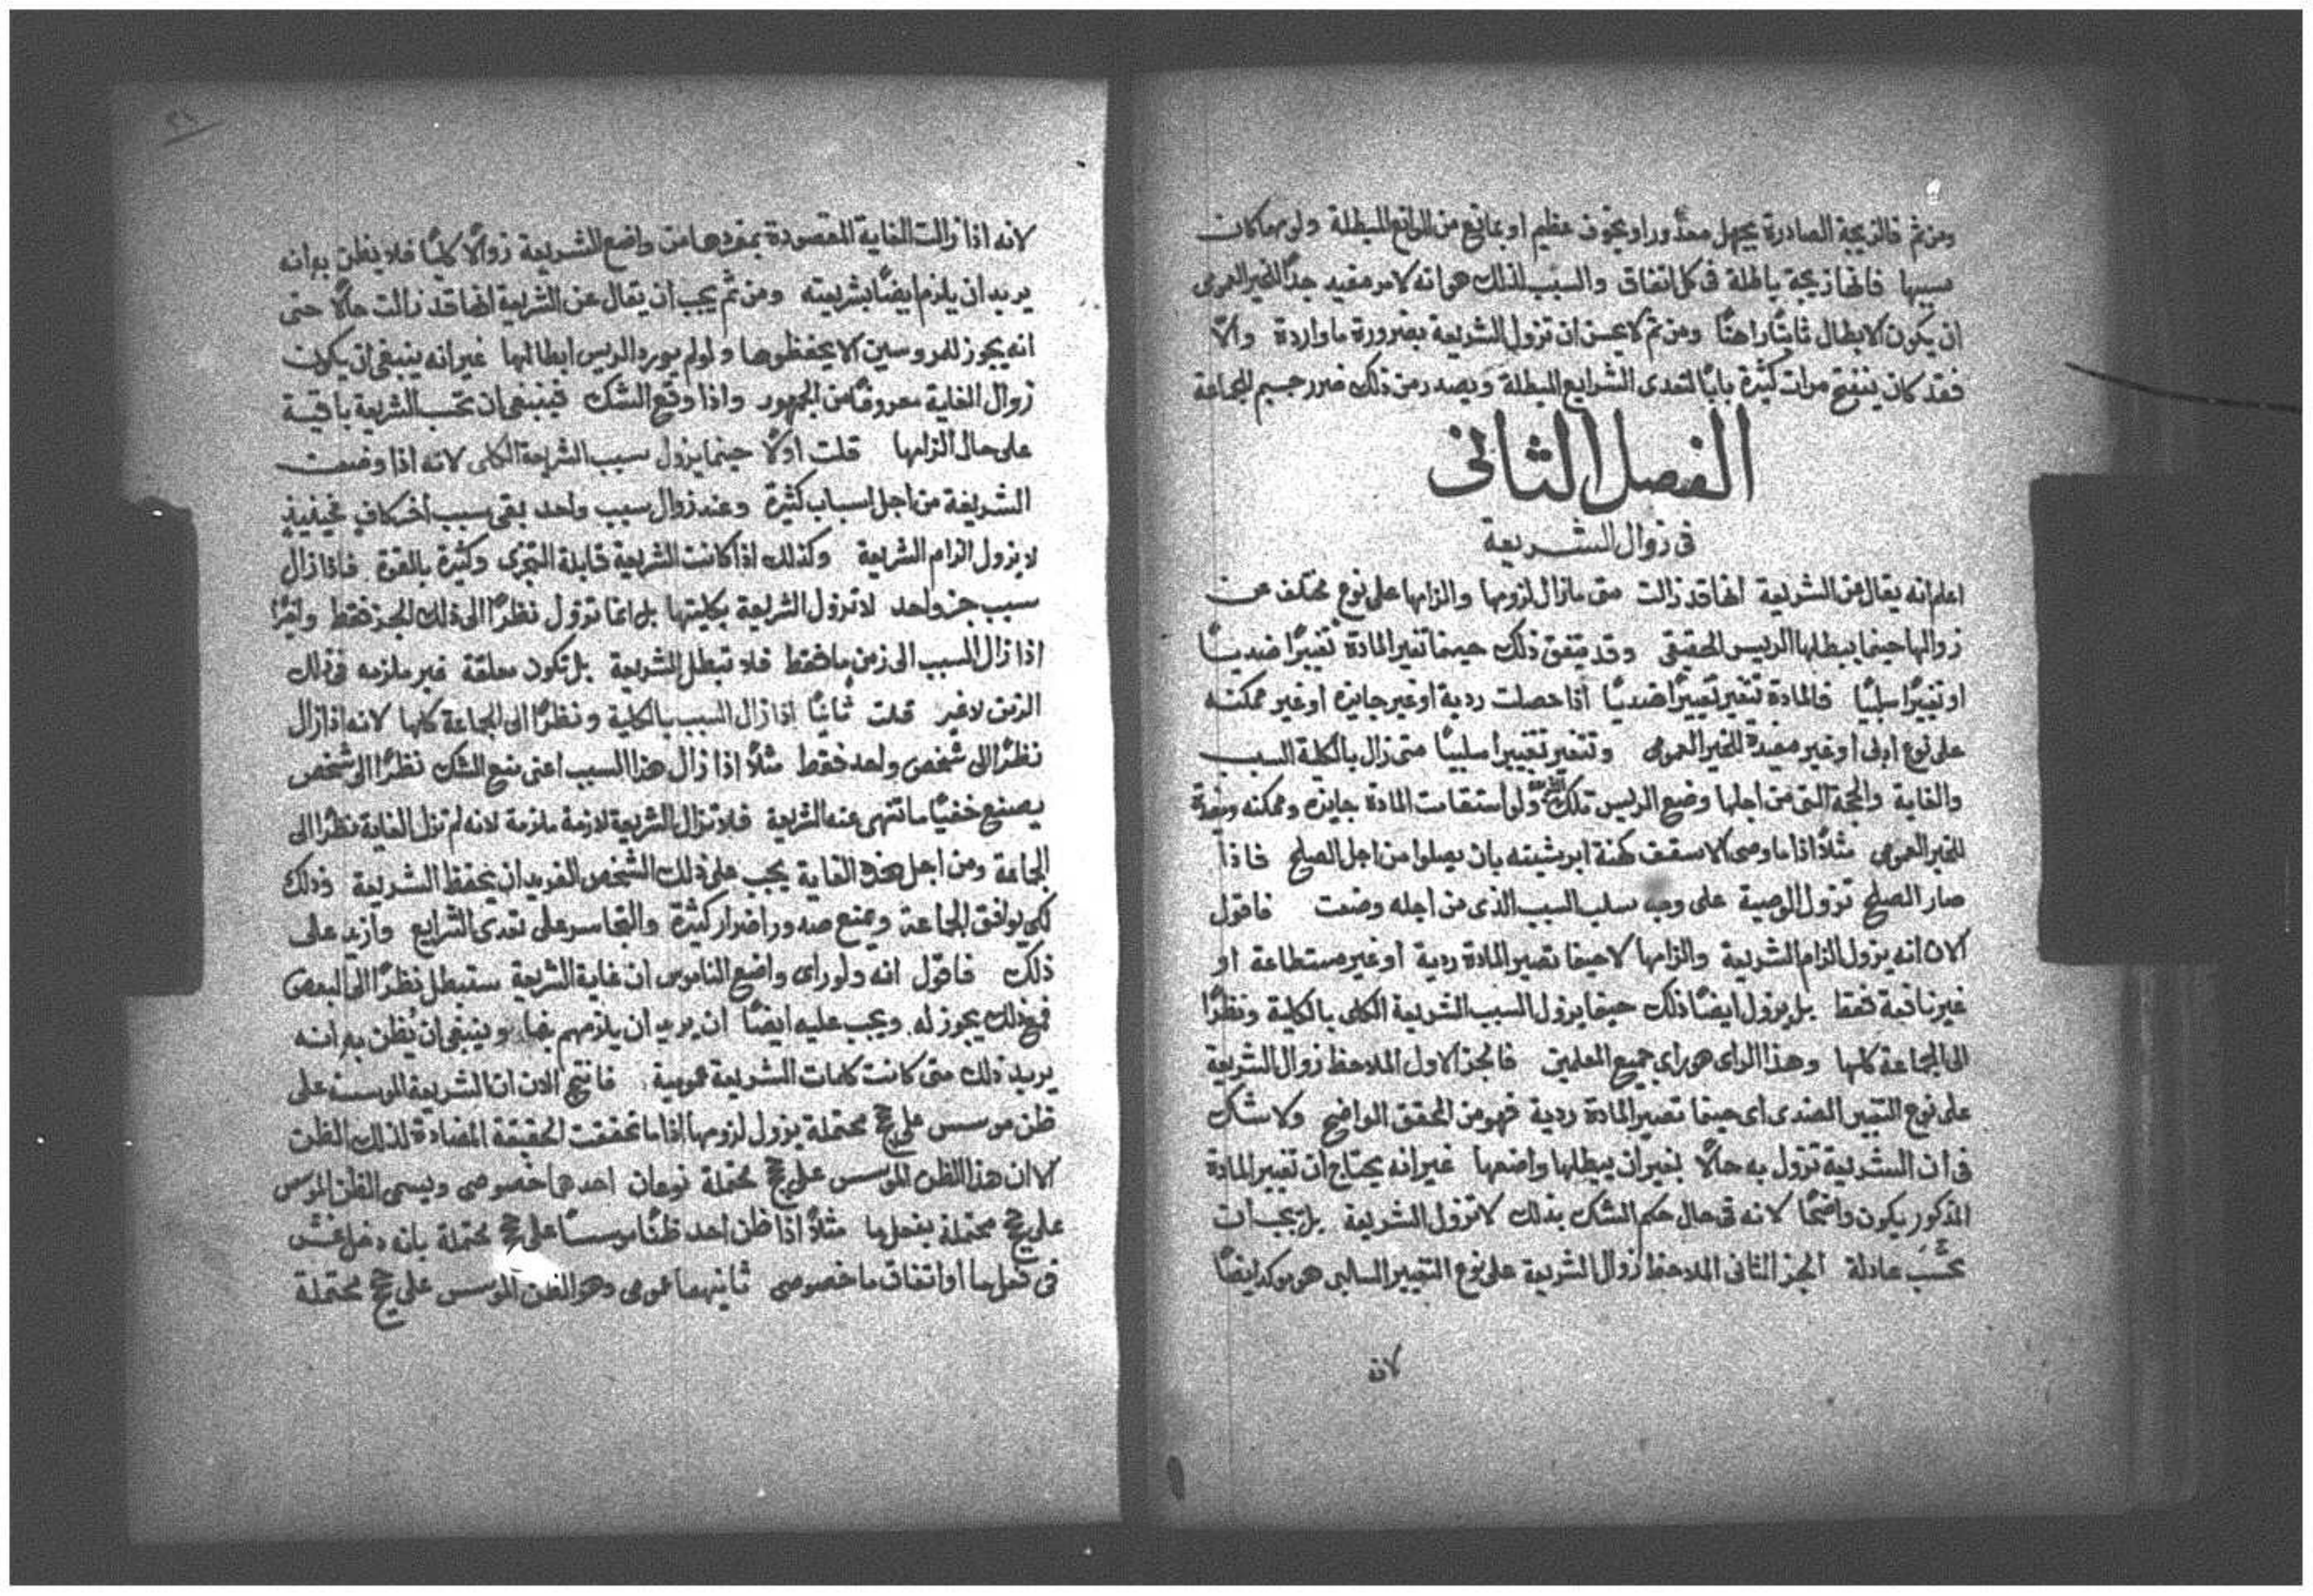 ومن ثم فالزيجة الصادرة بجهل معذور او بخوف عظيم او بمانع من الموانع المبطلة ولو مهما كانت
سببها فانها زيجة باطلة فى كل اتفاق والسبب لذلك هو انه لامر مفيد جدًا للخير العمومى
ان يكون الابطال ثابتًا راهنًا ومن ثم لا يحسن ان تزول الشريعة بضرورة ما واردة والّا
فقد كان ينفتح مرات كثيرة بابًا لتعدى الشرايع المبطلة ويصدر من ذلك ضرر جسيم للجماعة
الفصل الثانى
فى زوال الشريعة
اعلم انه يقال عن الشريعة انها قد زالت متى ما زال لزومها والزامها على نوع مختلف عن
زوالها حينما يبطلها الريس الحقيقى وقد يتفق ذلك حينما تغير المادة تغييرًا ضديًا
او تغييرًا سلبيًا فالمادة تتغير تغييرًا ضديًا اذا حصلت ردية او غير جايزه او غير ممكنه
على نوع ادبى او غير مفيدة للخير العمومى وتتغير تغييرا سلبيًا متى زال بالكلية السبب
والغاية والحجة التى من اجلها وضع الريس تلك ولو استقامت المادة جايزه وممكنه ومفيدة
للخير العمومى مثلًا اذا ما وصى الاسقف كهنة ابرشيته بان يصلوا من اجل الصلح فاذا
صار الصلح تزول الوصية على وجه سلب السبب الذى من اجله وضعت فاقول
الان انه يزول الزام الشريعة والزامها لا حينما تصير المادة ردية او غير مستطاعة او
غير نافعة فقط بل يزول ايضًا ذلك حينما يزول السبب الشريعة الكلى بالكلية ونظرًا
الى الجماعة كلها وهذا الراى هو راى جميع المعلمين فالجز الاول الملاحظ زوال الشريعة
على نوع التغيير الضدى اى حينما تصير المادة ردية فهو من المحقق الواضح ولا شك
فى ان الشريعة تزول به حالًا بغير ان يبطلها واضعها غير انه يحتاج ان تغيير المادة
المذكور يكون واضحًا لانه فى حال حكم الشك بذلك لا تزول الشريعة بل يجب ان
تحسب عادلة الجز الثانى الملاحظ زوال الشريعة على نوع التغيير السالبى هو موكد ايضًا
لانه
٢٨
لانه اذا زالت الغاية المقصودة بمفردها من واضع الشريعة زوالًا كليًا فلا يظن به انه
يريد ان يلزم ايضًا بشريعته ومن ثم يجب ان يقال عن الشريعة انها قد زالت حالًا حتى
انه يجوز للمروسين الا يحفظوها ولو لم يورد الريس ابطالها غير انه ينبغى ان يكون
زوال الغاية معروفًا من الجمهور واذا وقع الشك فينبغى ان تحسب الشريعة باقية
على حال الزامها قلت اولًا حينما يزول سبب الشريعة الكلى لانه اذا وضعت
الشريعة من اجل اسباب كثيرة وعند زوال سبب واحد بقى سبب اخر كافٍ فحينيذٍ
لا يزول الزام الشريعة وكذلك اذا كانت الشريعة قابلة التجزى وكثيرة بالقوة فاذا زال
سبب جز واحد لا تزول الشريعة بكليتها بل انما تزول نظرًا الى ذلك الجز فقط واخيرًا
اذا زال السبب الى زمن ما فقط فلا تبطل الشريعة بل تكون معلقة غير ملزمه فى ذلك
الزمن لا غير قلت ثانيًا اذا زال السبب بالكلية ونظرًا الى الجماعة كلها لانه اذا زال
نظرًا الى شخص واحد فقط مثلًا اذا زال هذا السبب اعنى منع الشك نظرًا الى شخص
يصنع خفيًا ما تنهى عنه الشريعة فلا تزال الشريعة لازمة ملزمة لانه لم تزل الغاية نظرًا الى
الجماعة ومن اجل هذه الغاية يجب على ذلك الشخص الفريد ان يحفظ الشريعة وذلك
لكى يوافق الجماعة ويمنع صدور اضرار كثيرة والتجاسر على تعدى الشرايع وازيد على
ذلك فاقول انه ولو راى واضع الناموس ان غاية الشريعة ستبطل نظرًا الى البعض
فمع ذلك يجوز له ويجب عليه ايضًا ان يريد ان يلزمهم بها وينبغى ان يُظن به انه
يريد ذلك متى كانت كلمات الشريعة عمومية فانتج الان ان الشريعة الموسسة على
ظن موسس على حجج محتملة يزول لزومها اذا ما تحققت الحقيقة المضادة لذلك الظن
لان هذا الظن الموسس على حجج محتملة نوعان احدهما خصوصى ويسمى الظن الموسس
على حجج محتملة بفعل ما مثلًا اذا ظن احد ظنًا موسسًا على حجج محتملة بانه دخل غش
فى فعل ما او اتفاق ما خصوصى ثانيهما عمومى وهو الظن الموسس على حجج محتملة